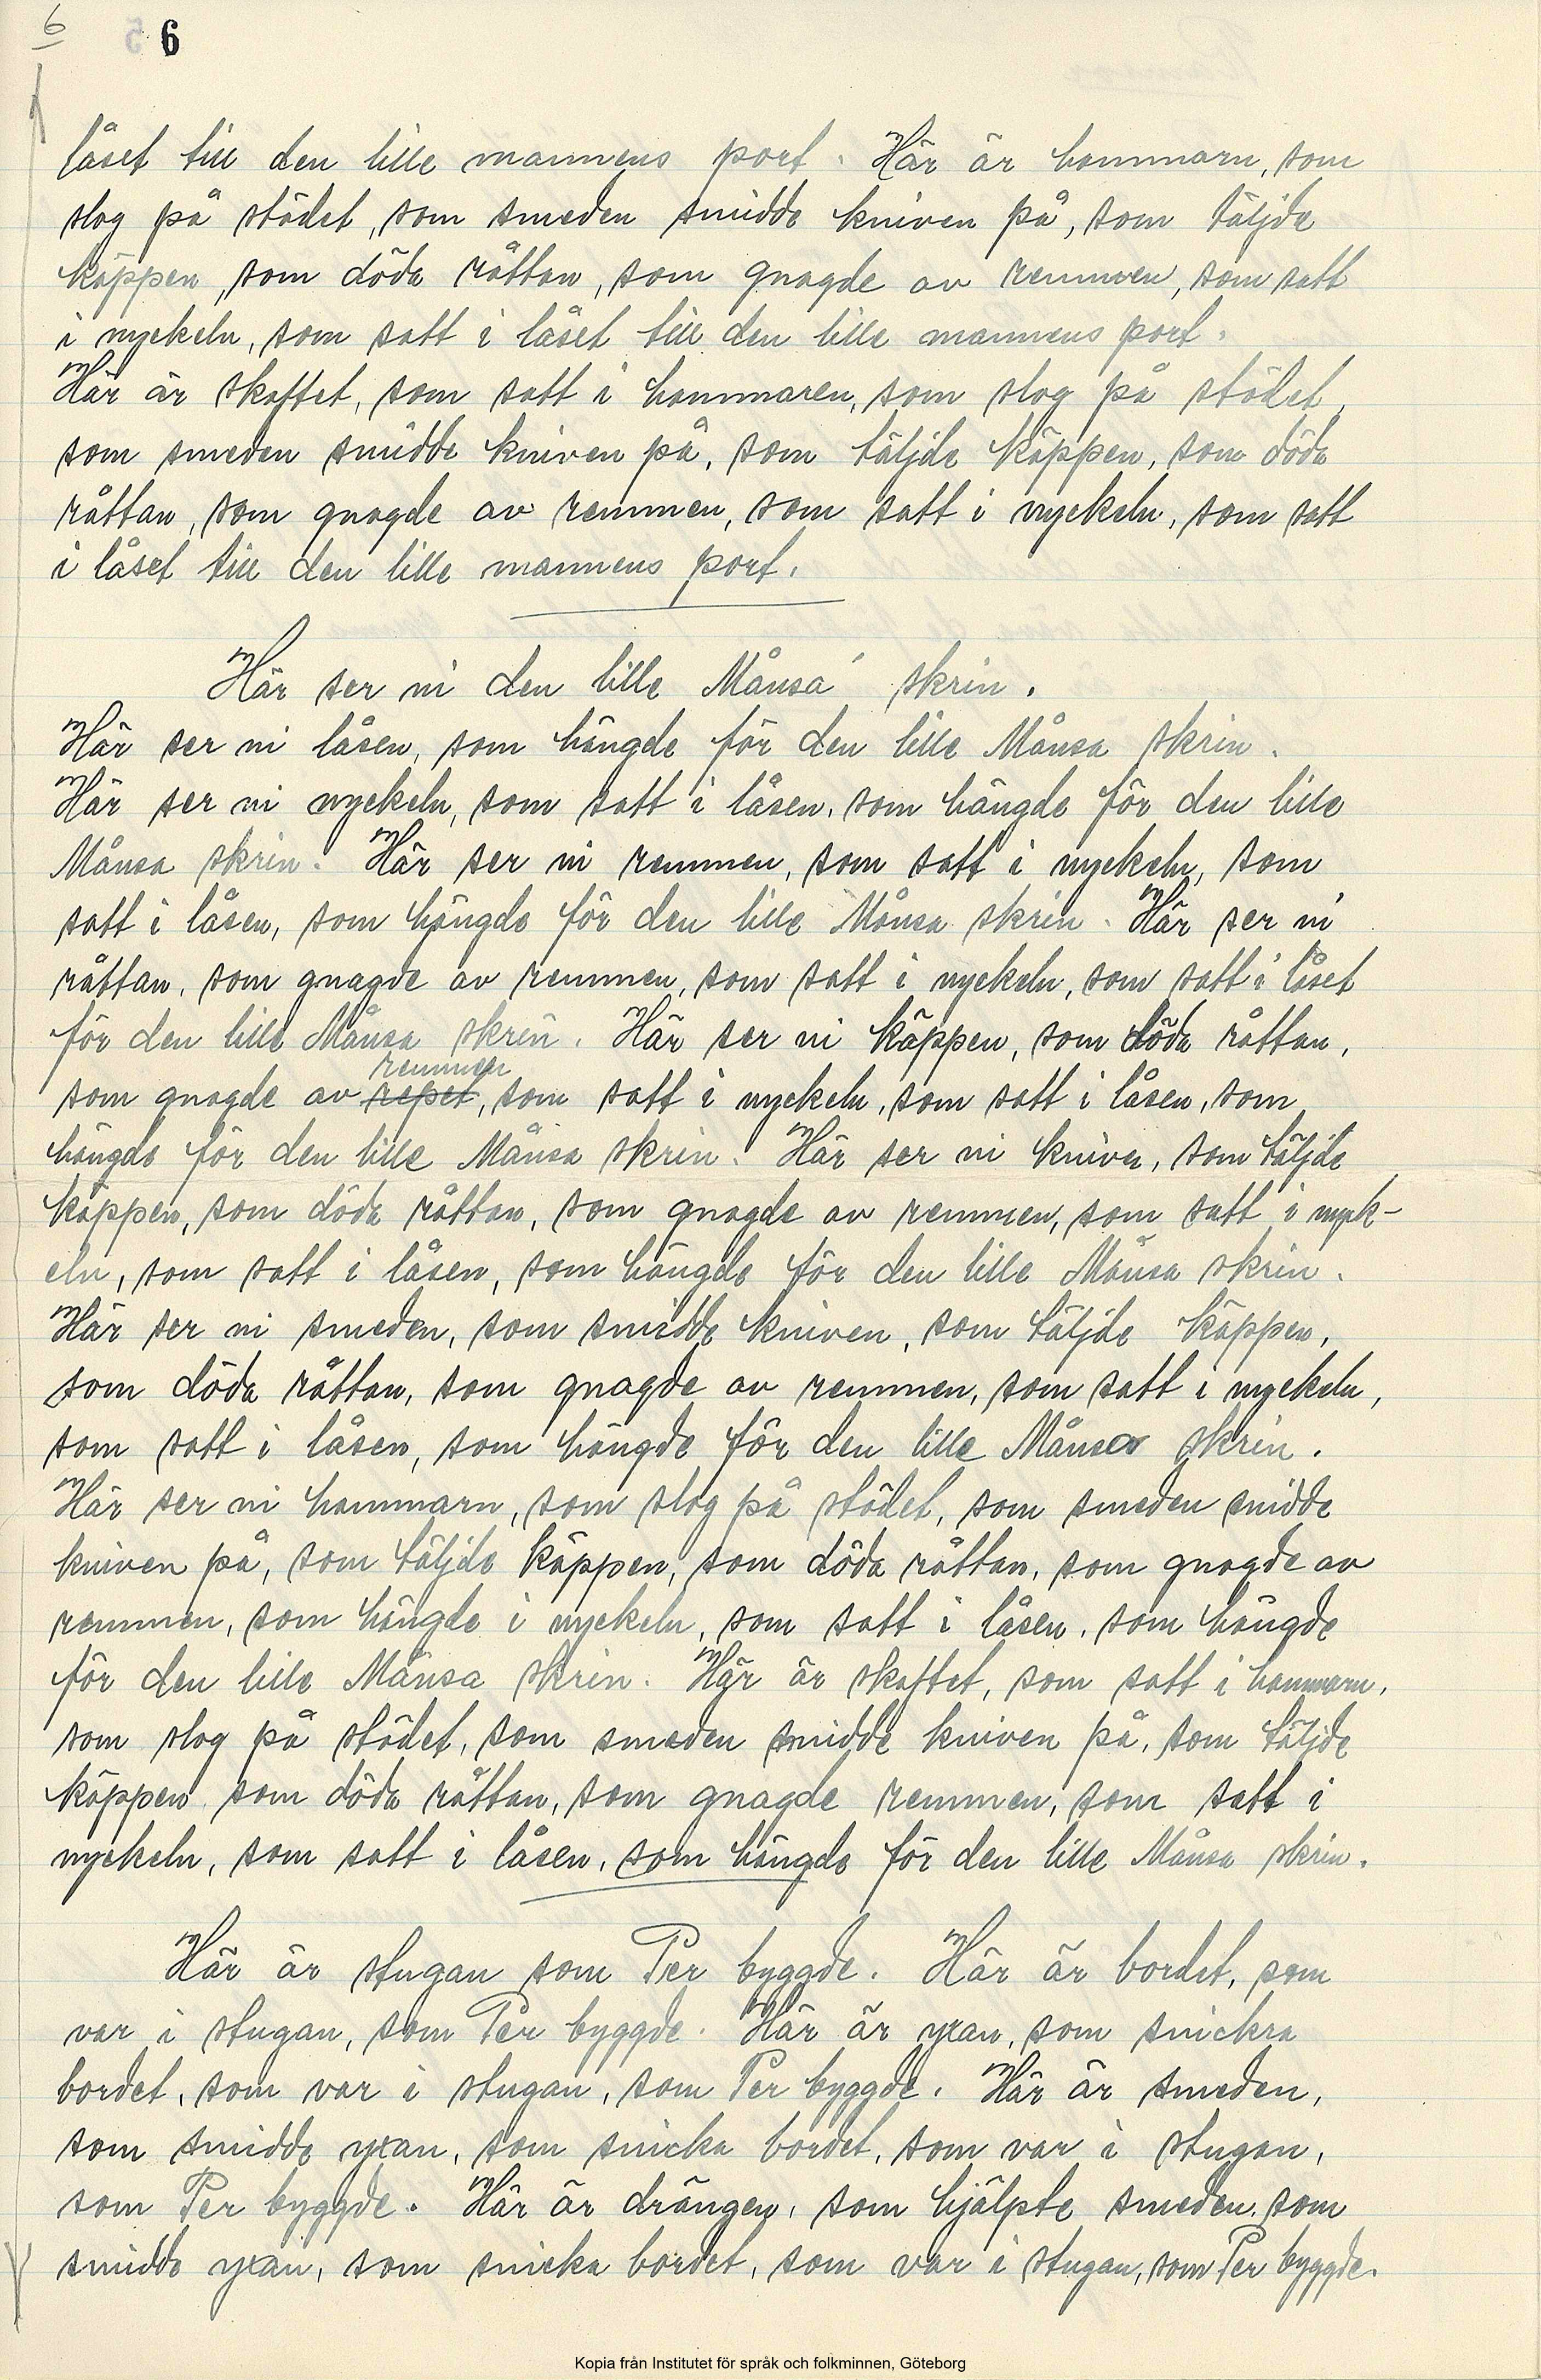 6 6
låset till den lille mannens port. Här är hammarn, som
slog på städet, som smeden smidde kniven på, som täljde
käppen, som döda råttan, som gnagde av remmen, som satt
i nyckeln, som satt i låset till den lille mannens port.
Här är skaftet, som satt i hammaren, som slog på städet,
som smeden smidde kniven på, som täljde käppen, som döda
råttan, som gnagde av remmen, som satt i nyckeln, som satt
i låset till den lille mannens port.
Här ser ni den lille Månsa' skrin.
Här ser ni låsen, som hängde för den lille Månsa skrin.
Här ser ni nyckeln, som satt i låsen, som hängde för den lille
Månsa skrin. Här ser ni remmen, som satt i nyckeln, som
satt i låsen, som hängde för den lille Månsa skrin. Här ser ni
råttan, som gnagde av remmen, som satt i nyckeln, som satt i låset
för den lille Månsa skrin. Här ser ni käppen, som döda råttan,
remmen
som gnagde av repet, som satt i nyckeln, som satt i låsen, som
hängde för den lille Månsa skrin. Här ser ni kniven, som täljde
käppen, som döda råttan, som gnagde av remmen, som satt i nyck-
eln, som satt i låsen, som hängde för den lille Månsa skrin.
Här ser ni smeden, som smidde kniven, som täljde käppen,
som döda råttan, som gnagde av remmen, som satt i nyckeln,
som satt i låsen, som hängde för den lille Månsa skrin.
Här ser ni hammarn, som slog på städet, som smeden smidde
kniven på, som täljde käppen, som döda råttan, som gnagde av
remmen, som hängde i nyckeln, som satt i låsen, som hängde
för den lille Månsa skrin. Här är skaftet, som satt i hammarn,
som slog på städet, som smeden smidde kniven på, som täljde
käppen som döda råttan, som gnagde remmen, som satt i
nyckeln, som satt i låsen, som hängde för den lille Månsa skrin.
Här är stugan som Per byggde. Här är bordet, som
var i stugan, som Per byggde. Här är yxan, som snickra
bordet, som var i stugan, som Per byggde. Här är smeden,
som smidde yxan, som snicka bordet, som var i stugan,
som Per byggde. Här är drängen, som hjälpte smeden, som
smidde yxan, som snicka bordet, som var i stugan, som Per byggde.
Kopia från Institutet för språk och folkminnen, Göteborg